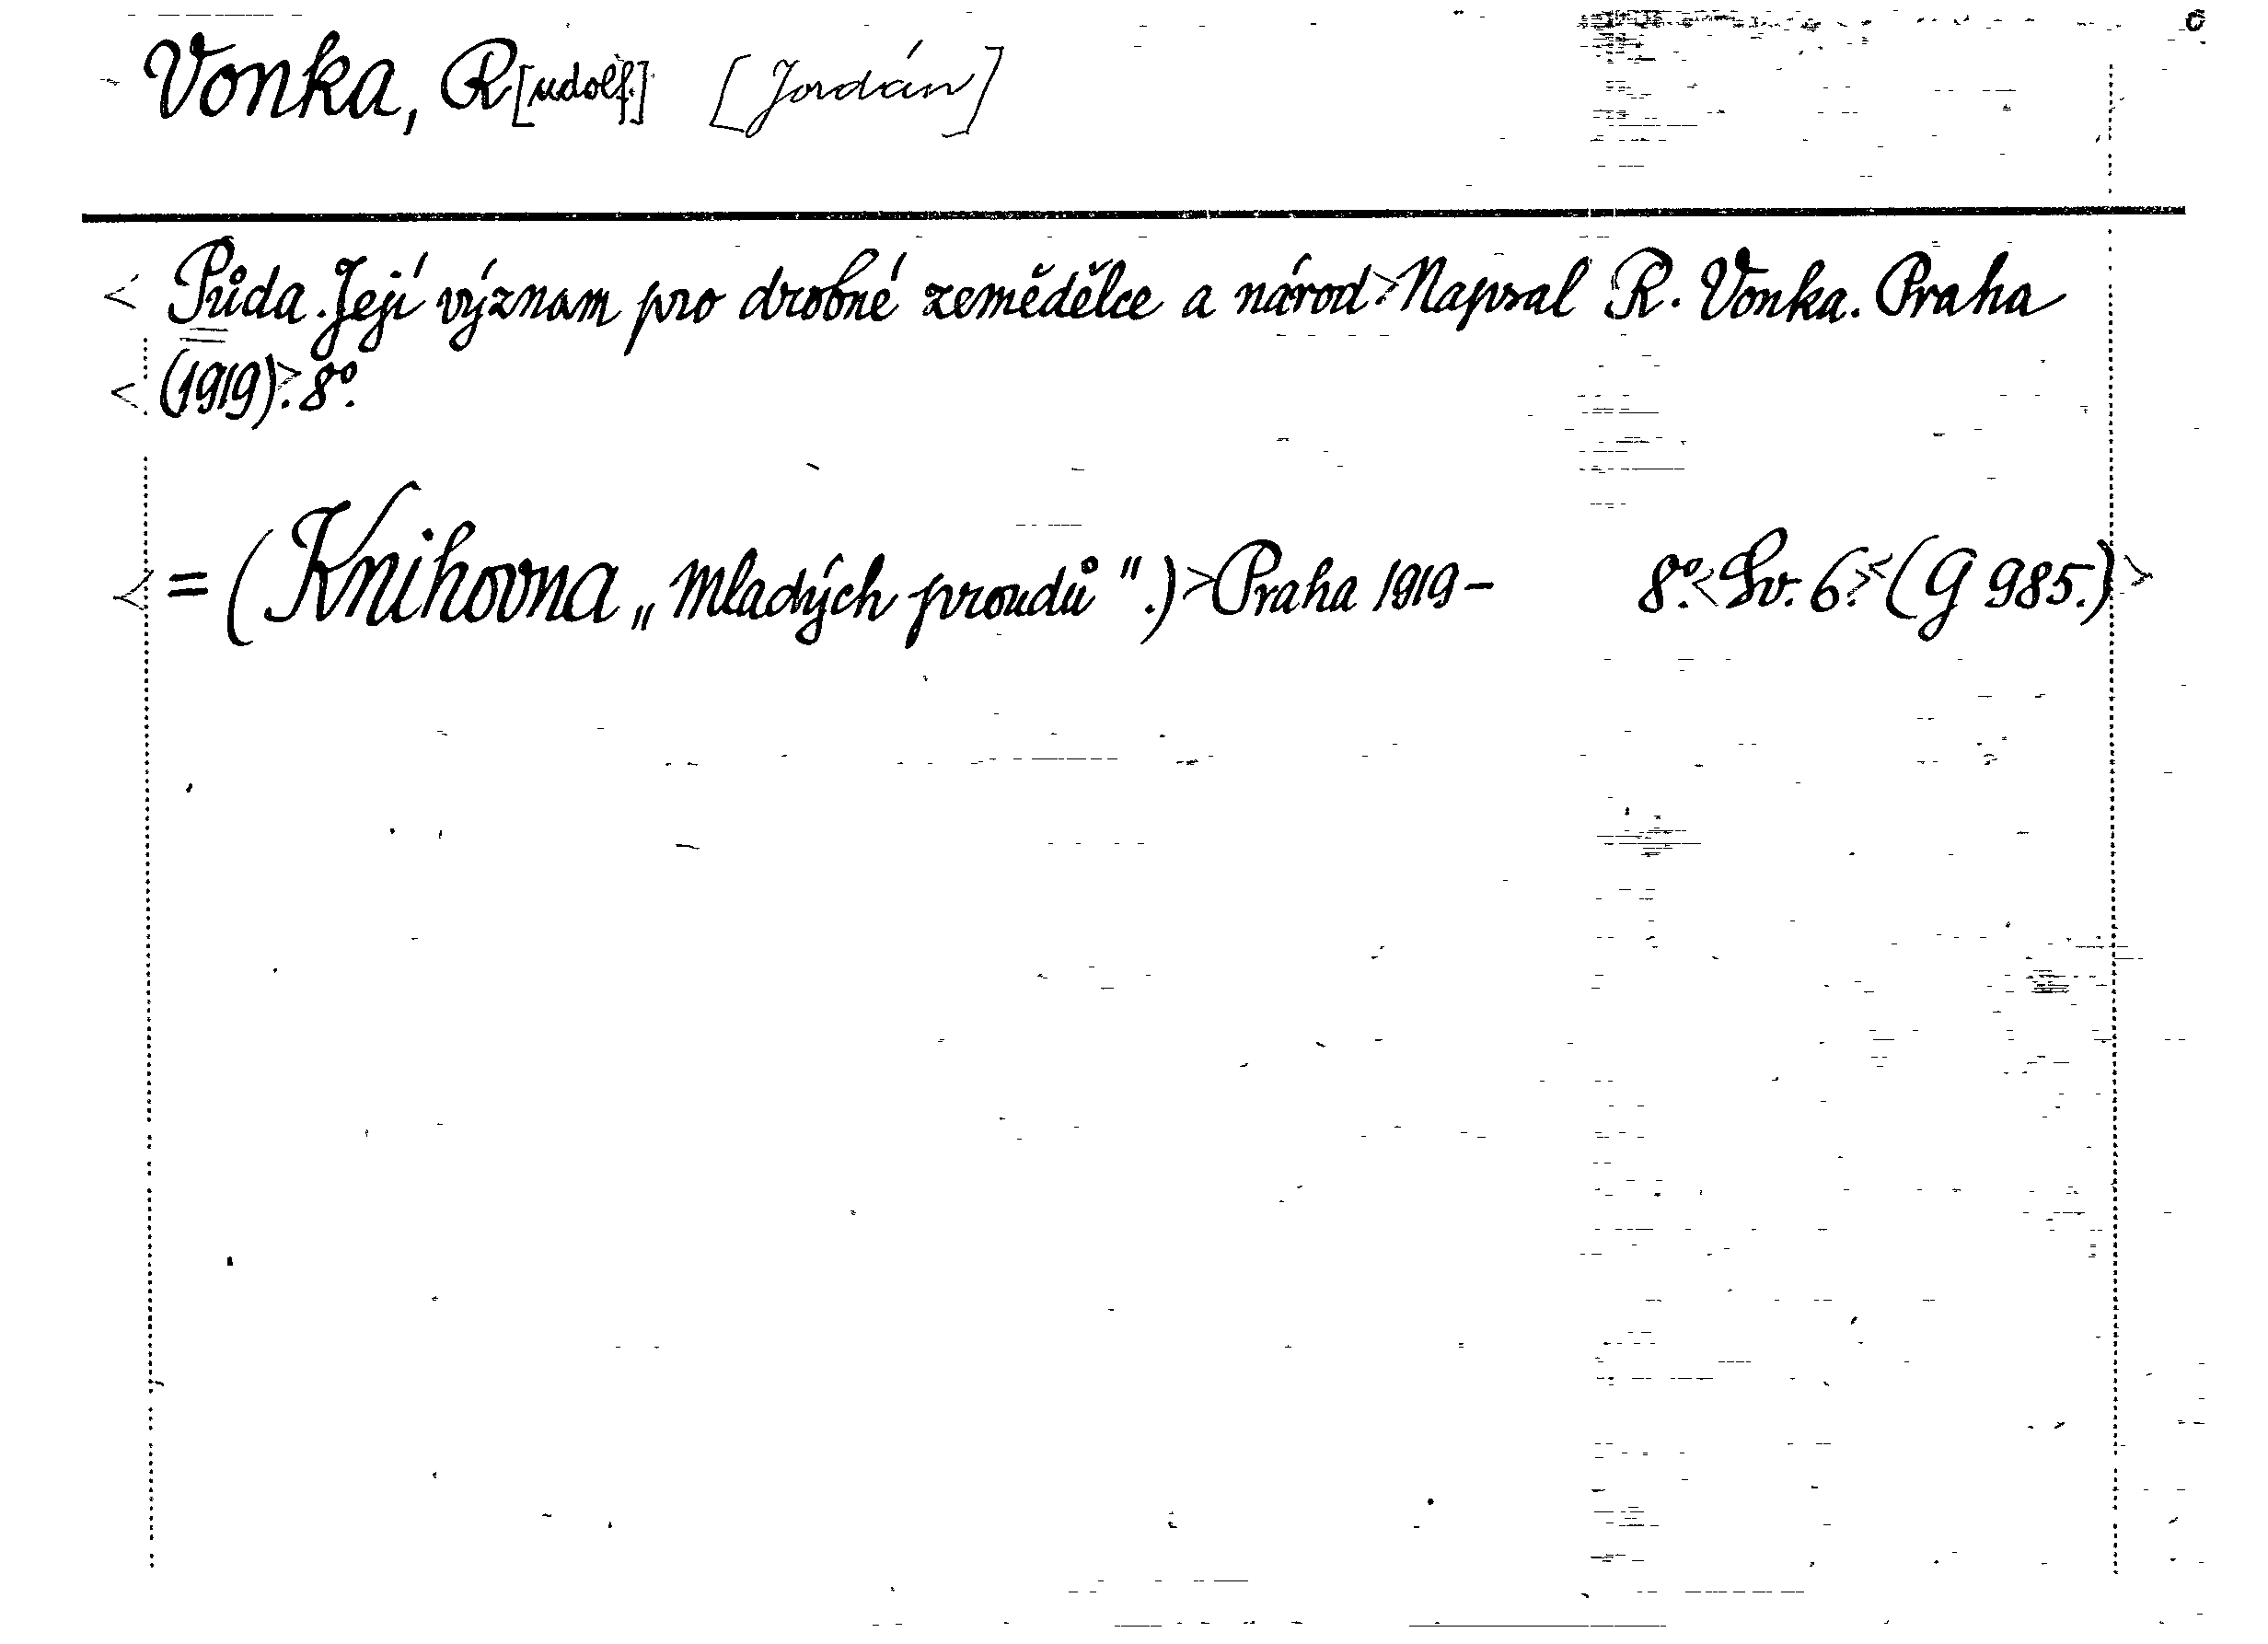 Vonka, R[udolf] [Jordán]
< Půda. Její význam pro drobné zemědělce a národ.> Napsal R. Vonka. Praha
< (1919).> 8º.
< = (Knihovna „Mladých proudů".) > Praha 1919 – 8º. < Sv. 6. > < (G 985.) >